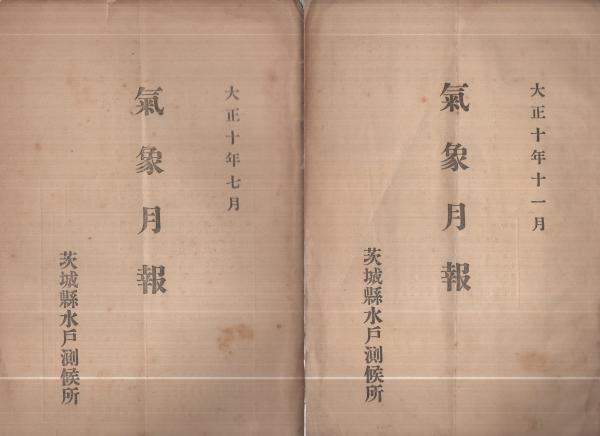 大正十年十一月
氣象月報
茨城縣水戸測候所
大正十年七月
氣象月報
茨城縣水戸測候所